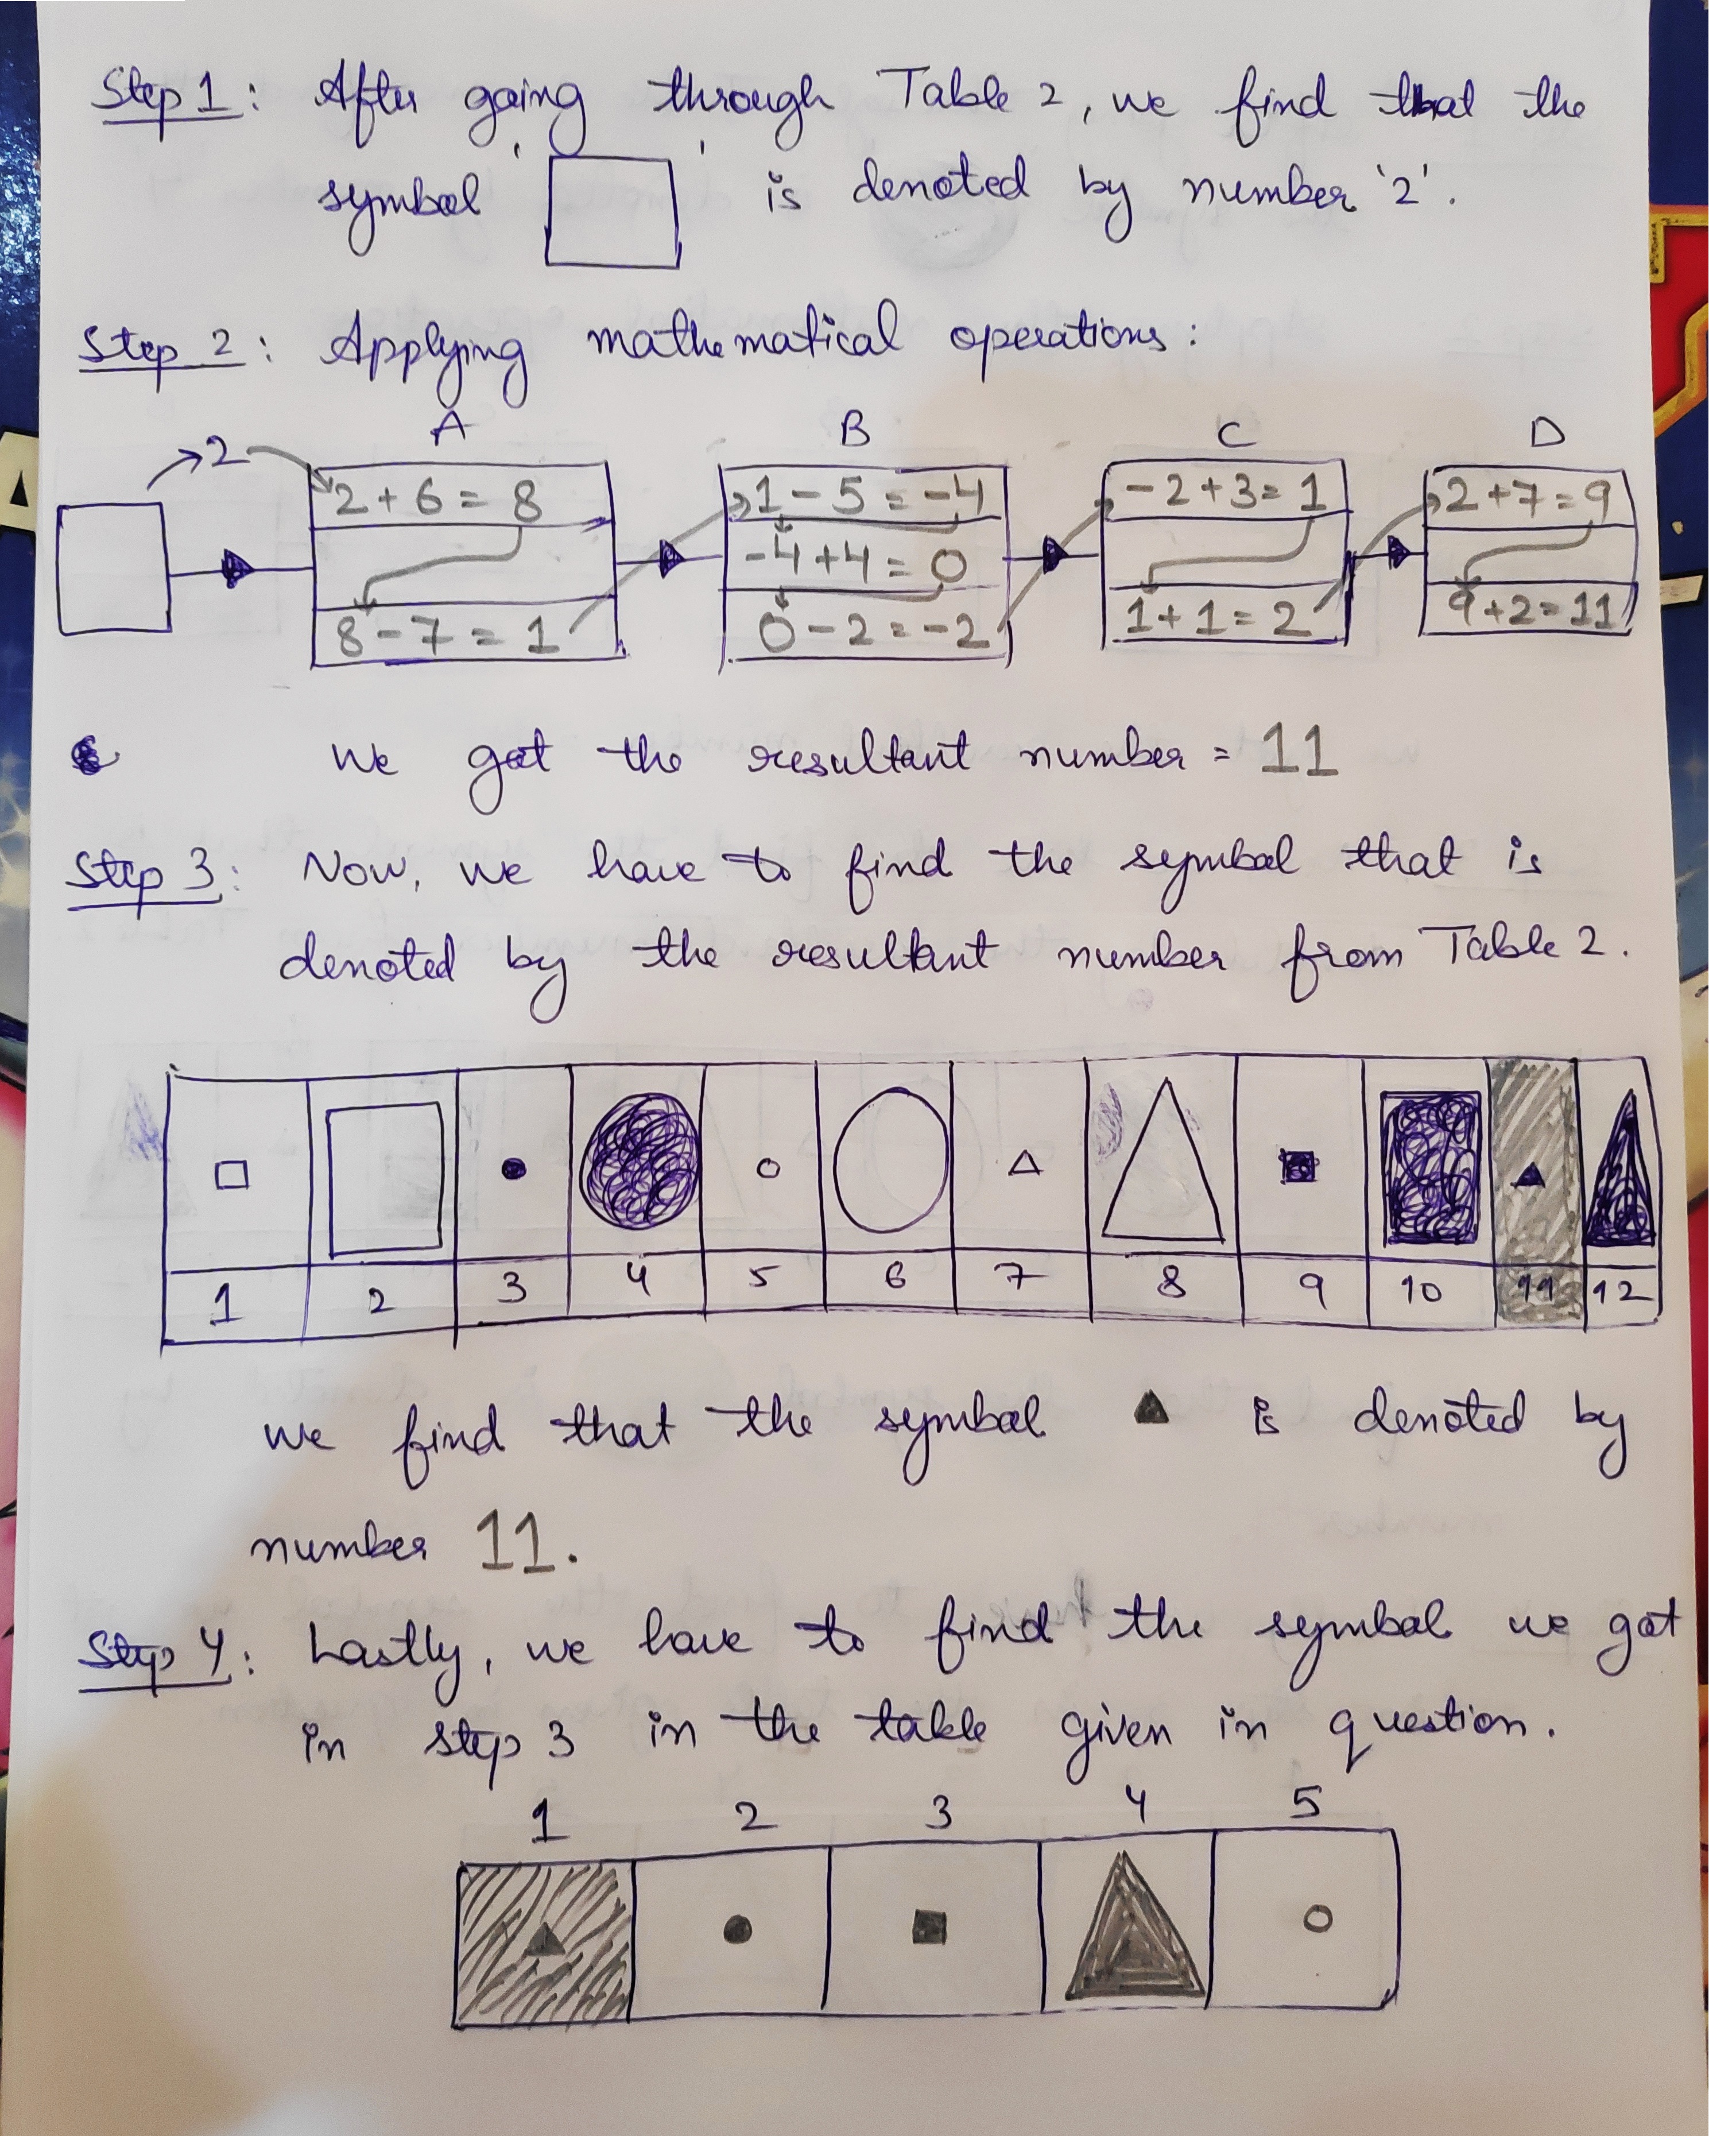 Step 1: After going through Table 2, we find that the
symbol ' ' is denoted by number '2'.
Step 2: Applying mathematical operations:
A B C D
2
2 + 6 = 8 1 - 5 = -4 -2 + 3 = 1 2 + 7 = 9
-4 + 4 = 0
8 - 7 = 1 0 - 2 = -2 1 + 1 = 2 9 + 2 = 11
We got the resultant number = 11
Step 3: Now, we have to find the symbol that is
denoted by the resultant number from Table 2.
1 2 3 4 5 6 7 8 9 10 11 12
we find that the symbol ▲ is denoted by
number 11.
Step 4: Lastly, we have to find the symbol we got
in step 3 in the table given in question.
1 2 3 4 5